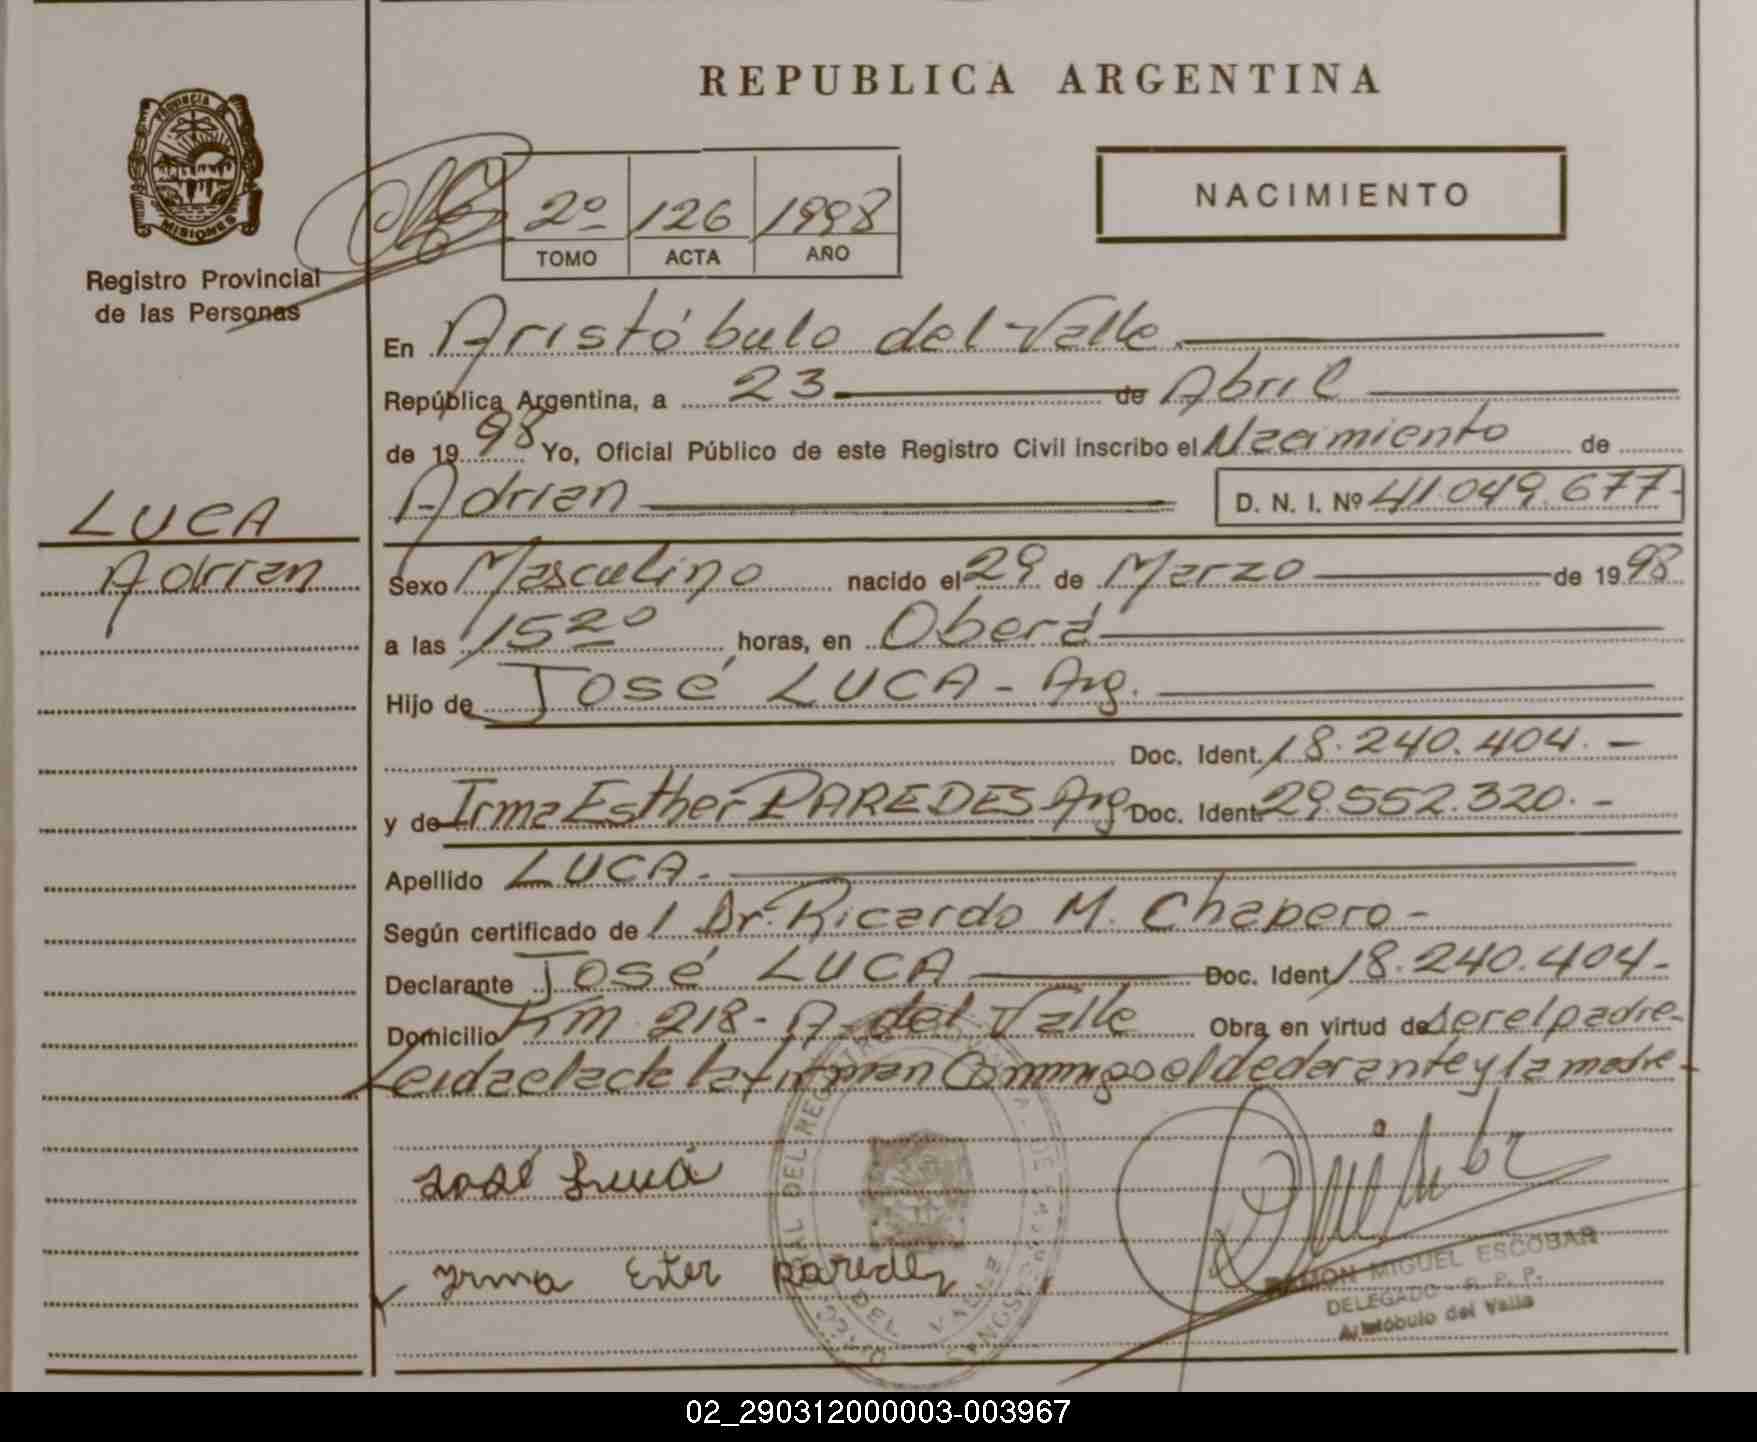 REPUBLICA ARGENTINA
PROVINCIA
MISIONES
Registro Provincial
de las Personas
2º 126 1998
TOMO ACTA AÑO
NACIMIENTO
En Aristóbulo del Valle
República Argentina, a 23 de Abril
de 1998 Yo, Oficial Público de este Registro Civil inscribo el Nacimiento de
Adrian D. N. I. Nº 41.049.677-
LUCA
Adrian
Sexo Masculino nacido el 29 de Marzo de 1998
a las 15 20 horas, en Oberá
Hijo de José LUCA - Arg.
Doc. Ident. 18.240.404.-
y de Irma Esther PAREDES Arg Doc. Ident. 29.552.320.-
Apellido LUCA.-
Según certificado de / Dr. Ricardo M. Chapero-
Declarante José LUCA Doc. Ident. 18.240.404-
Domicilio Km 218- A. del Valle Obra en virtud de ser el padre-
Leida el acta la firman Conmigo el declarante y la madre-
José Luca
yrma Ester paredez
DEL VALLE
RAMON MIGUEL ESCOBAR
DELEGADO - R. P. P.
Aristóbulo del Valle
02_290312000003-003967